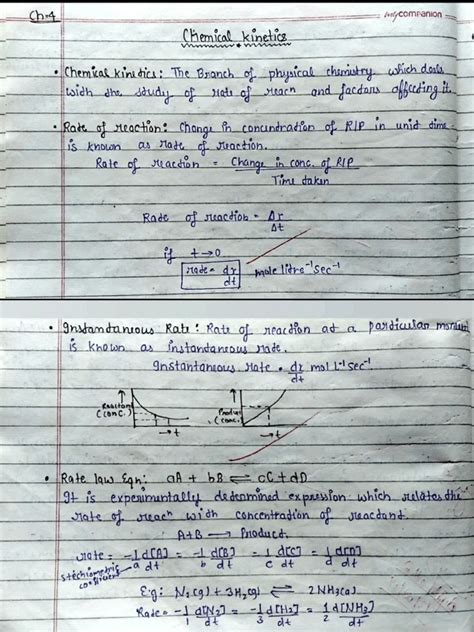 Ch-4
my companion
Chemical kinetics
• Chemical kinetics: The Branch of physical chemistry which deals
with the study of rate of reacn and factors affecting it.
• Rate of reaction: Change in concentration of R/P in unit time
is known as rate of reaction.
Rate of reaction = Change in conc. of R/P
Time taken
Rate of reaction = Δr
Δt
if t→0
rate = dr mole litre⁻¹ sec⁻¹
dt
• Instantaneous Rate: Rate of reaction at a particular moment
is known as instantaneous rate.
Instantaneous Rate = dr mol L⁻¹ sec⁻¹
dt
Reactant
(conc.)
→t
Product
(conc.)
→t
• Rate law Eqn: aA + bB ⇌ cC + dD
It is experimentally determined expression which relates the
rate of reacn with concentration of reactant.
A+B → Product.
rate = -1 d[A] = -1 d[B] = 1 d[C] = 1 d[D]
a dt b dt c dt d dt
stechiometric
coefficient
E.g: N₂(g) + 3H₂(g) ⇌ 2NH₃(g)
Rate = -1 d[N2] = -1 d[H2] = 1 d[NH3]
1 dt 3 dt 2 dt